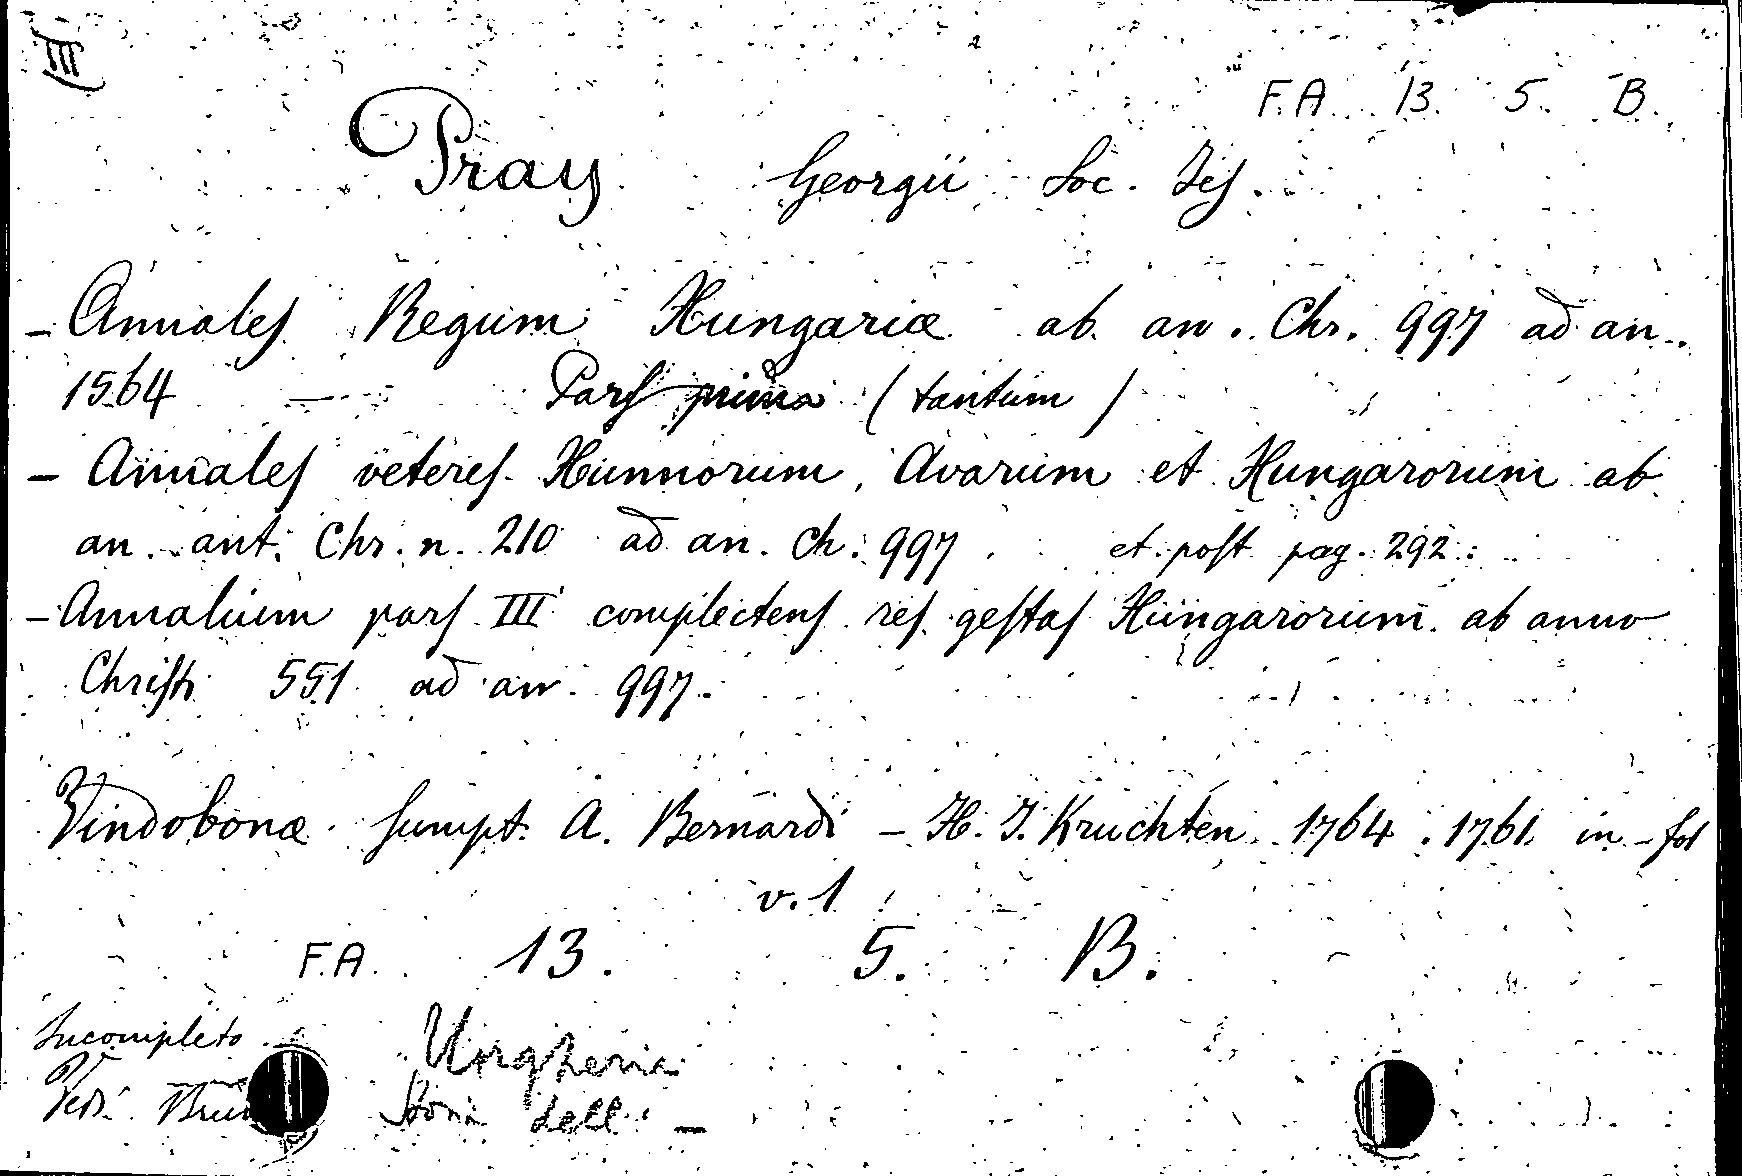 III
F.A. 13. 5. B.
Pray Georgii Soc. Jes.
- Annales Regum Hungariæ ab an. Chr. 997 ad an.
1564 — Pars prima (tantum)
- Annales veteres Hunnorum, Avarum et Hungarorum ab
an. ant. Chr. n. 210 ad an. Ch. 997. et post pag. 292.
- Annalium pars III complectens res gestas Hungarorum ab anno
Christi 551 ad an. 997.
Vindobonæ sumpt. A. Bernardi - H. J. Kruchten 1764. 1761. in-fol
v. 1
F.A. 13. 5. B.
Incompleto
Ungheria
Vedi
Storia dell' —